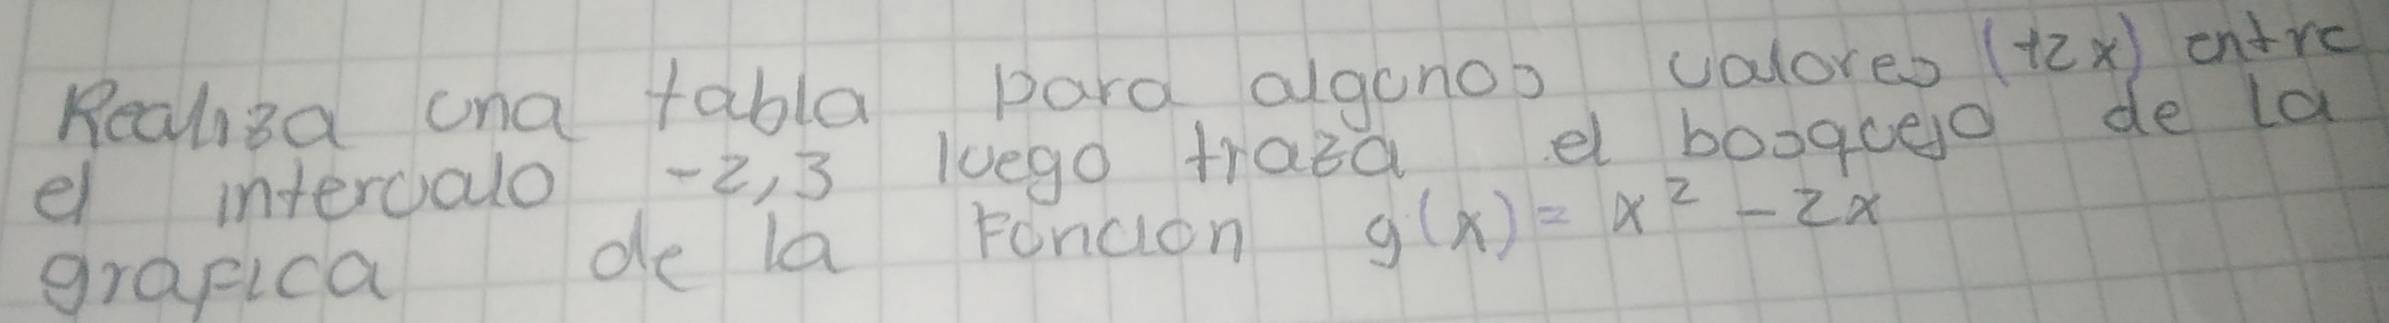 Realiza una tabla para algunos valores (+2x) entre
el intervalo -2,3 luego traza el bosquejo de la
grafica de la Funcion g(x) = x² - 2x